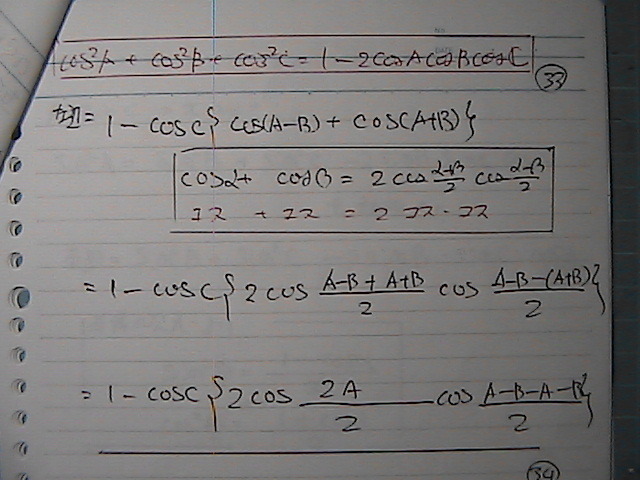 cos²A + cos²B + cos²C = 1 - 2cosAcosBcosC
33
좌변 = 1 - cosC{cos(A-B) + cos(A+B)}
cosα + cosβ = 2 cos (α+β)/2 cos (α-β)/2
ココ + ココ = 2 ココ·ココ
= 1 - cosC{2cos (A-B+A+B)/2 cos (A-B-(A+B))/2}
= 1 - cosC{2cos 2A/2 cos (A-B-A-B)/2}
34